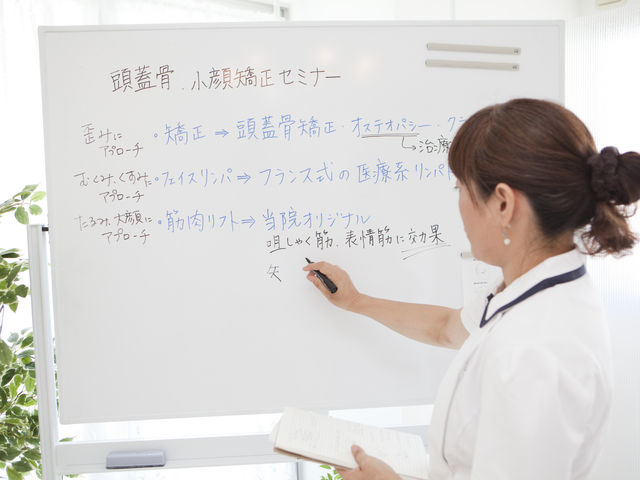 頭蓋骨.小顔矯正セミナー
歪みに
アプローチ
・矯正⇒頭蓋骨矯正・オステオパシー・クラ
治療
むくみ、くすみに
アプローチ
・フェイスリンパ⇒フランス式の医療系リンパド
たるみ、大顔に
アプローチ
・筋肉リフト⇒当院オリジナル
咀しゃく筋、表情筋に効果
矢